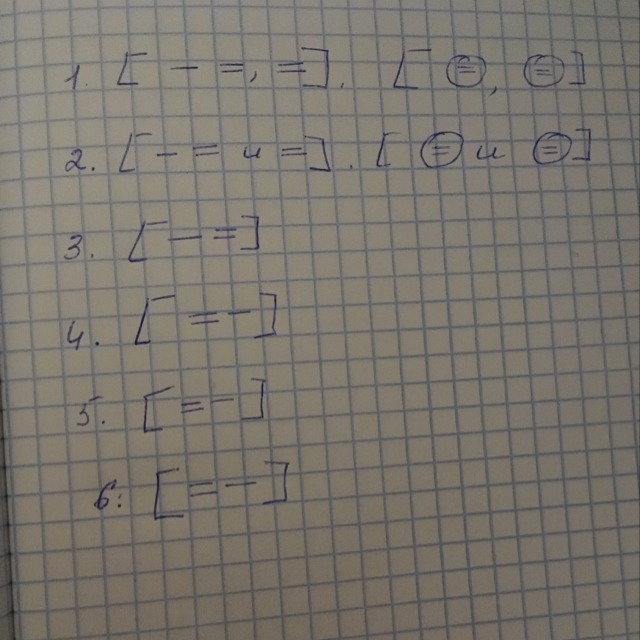 1. [ — =, =]. [ ⊜, ⊜ ]
2. [ — = и = ]. [ ⊜ и ⊜ ]
3. [ — = ]
4. [ = — ]
5. [ = — ]
6. [ = — ]